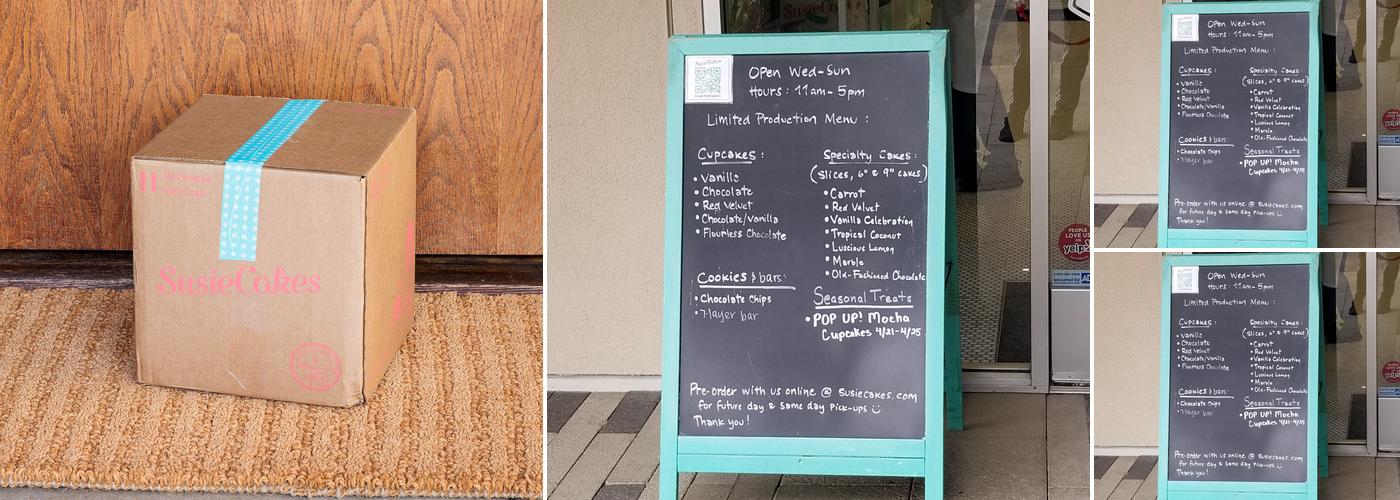 SusieCakes
SusieCakes
SusieCakes
Open Wed-Sun
Hours: 11am-5pm
Limited Production Menu :
Cupcakes :
• Vanilla
• Chocolate
• Red Velvet
• Chocolate/Vanilla
• Flourless Chocolate
Cookies & bars:
• Chocolate Chips
• 7-layer bar
Specialty Cakes :
(Slices, 6" & 9" cakes)
• Carrot
• Red Velvet
• Vanilla Celebration
• Tropical Coconut
• Luscious Lemon
• Marble
• Old-Fashioned Chocolate
Seasonal Treats
• POP UP! Mocha
Cupcakes 4/21-4/25
Pre-order with us online @ susiecakes.com
for future day & same day pick-ups
Thank you!
PEOPLE
LOVE US
ON
yelp
Open Wed-Sun
Hours: 11am-5pm
Limited Production Menu :
Cupcakes :
• Vanilla
• Chocolate
• Red Velvet
• Chocolate/Vanilla
• Flourless Chocolate
Cookies & bars:
• Chocolate Chips
• 7-layer bar
Specialty Cakes :
(Slices, 6" & 9" cakes)
• Carrot
• Red Velvet
• Vanilla Celebration
• Tropical Coconut
• Luscious Lemon
• Marble
• Old-Fashioned Chocolate
Seasonal Treats
• POP UP! Mocha
Cupcakes 4/21-4/25
Pre-order with us online @ susiecakes.com
for future day & same day pick-ups
Thank you!
Open Wed-Sun
Hours: 11am-5pm
Limited Production Menu :
Cupcakes :
• Vanilla
• Chocolate
• Red Velvet
• Chocolate/Vanilla
• Flourless Chocolate
Cookies & bars:
• Chocolate Chips
• 7-layer bar
Specialty Cakes :
(Slices, 6" & 9" cakes)
• Carrot
• Red Velvet
• Vanilla Celebration
• Tropical Coconut
• Luscious Lemon
• Marble
• Old-Fashioned Chocolate
Seasonal Treats
• POP UP! Mocha
Cupcakes 4/21-4/25
Pre-order with us online @ susiecakes.com
for future day & same day pick-ups
Thank you!